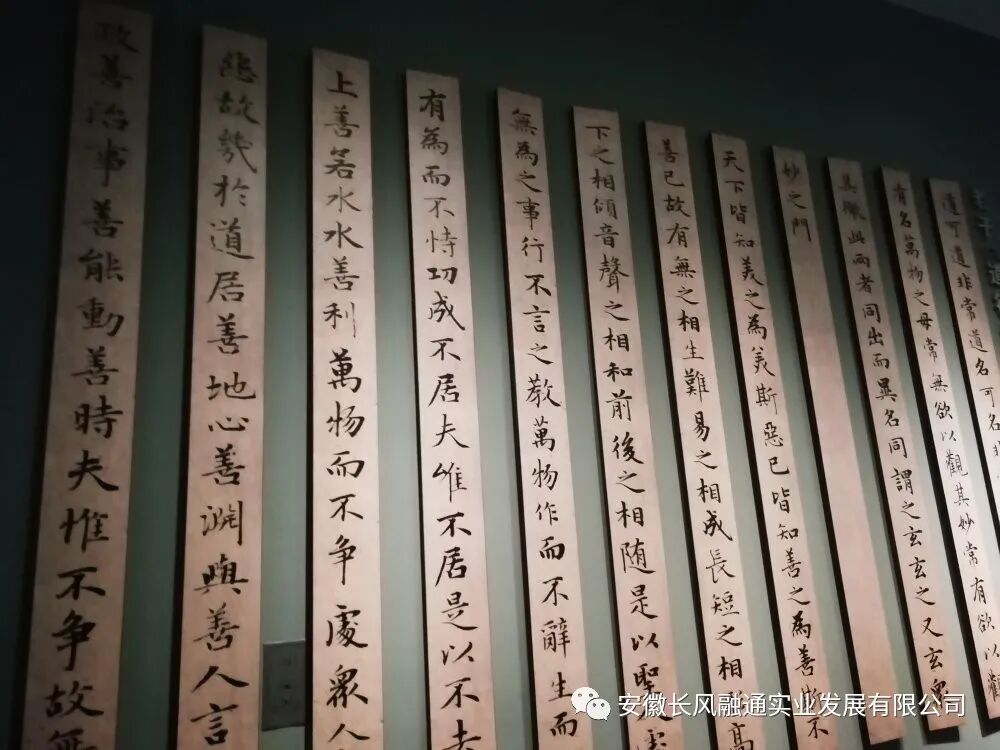 道可道非常道名可名非
有名萬物之母常無欲以觀其妙常有欲以觀
其徼此兩者同出而異名同謂之玄玄之又玄衆
妙之門
天下皆知美之為美斯惡已皆知善之為善斯不
善已故有無之相生難易之相成長短之相形高
下之相傾音聲之相和前後之相随是以聖人處
無為之事行不言之教萬物作而不辭生而
有為而不恃功成不居夫唯不居是以不去
上善若水水善利萬物而不争處衆人
惡故幾於道居善地心善渊與善人言
政善治事善能動善時夫惟不争故無
安徽长风融通实业发展有限公司